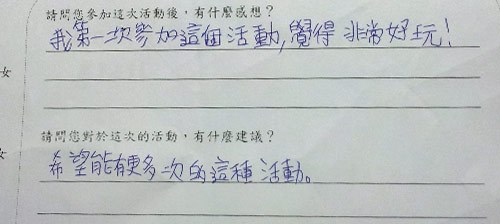 請問您參加這次活動後，有什麼感想？
我第一次參加這個活動,覺得非常好玩!
女
請問您對於這次的活動，有什麼建議？
女
希望能有更多次的這種活動。